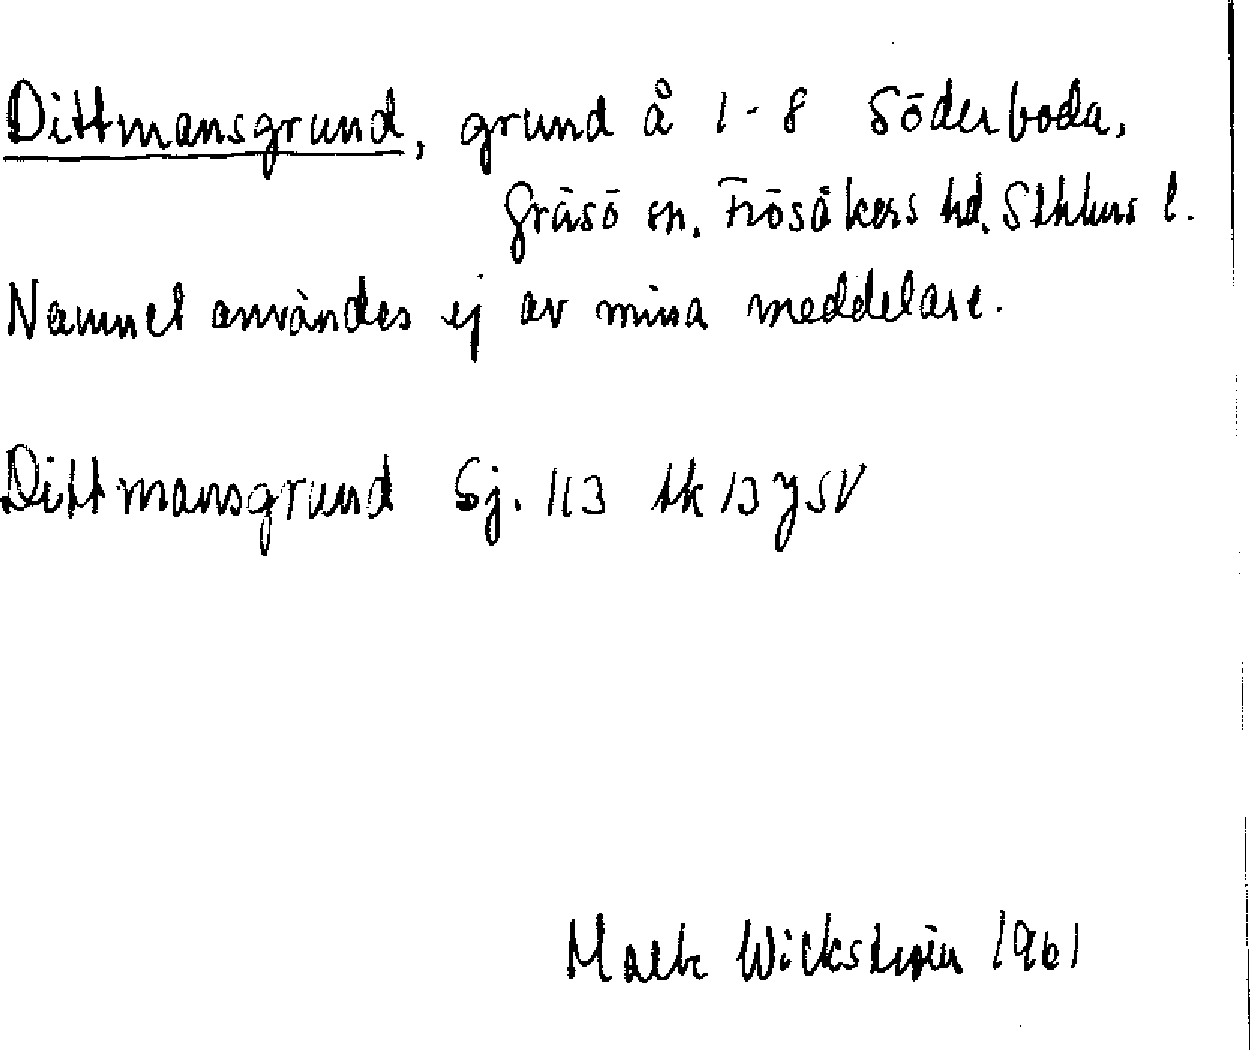 Dittmansgrund, grund å 1-8 Söderboda,
Gräsö sn. Frösåkers hd. Sthlms l.
Namnet användes ej av mina meddelare.
Dittmansgrund Sj. 113 tk 13 y SV
Wickström 1961